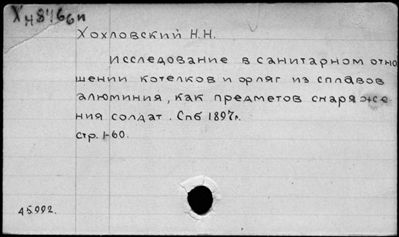 Хн8466п
Хохловский Н.Н.
Исследование в санитарном отно
шении котелков и фляг из сплавов
алюминия, как предметов снаряже
ния солдат. Спб 1897г.
стр. 1-60.
45992.